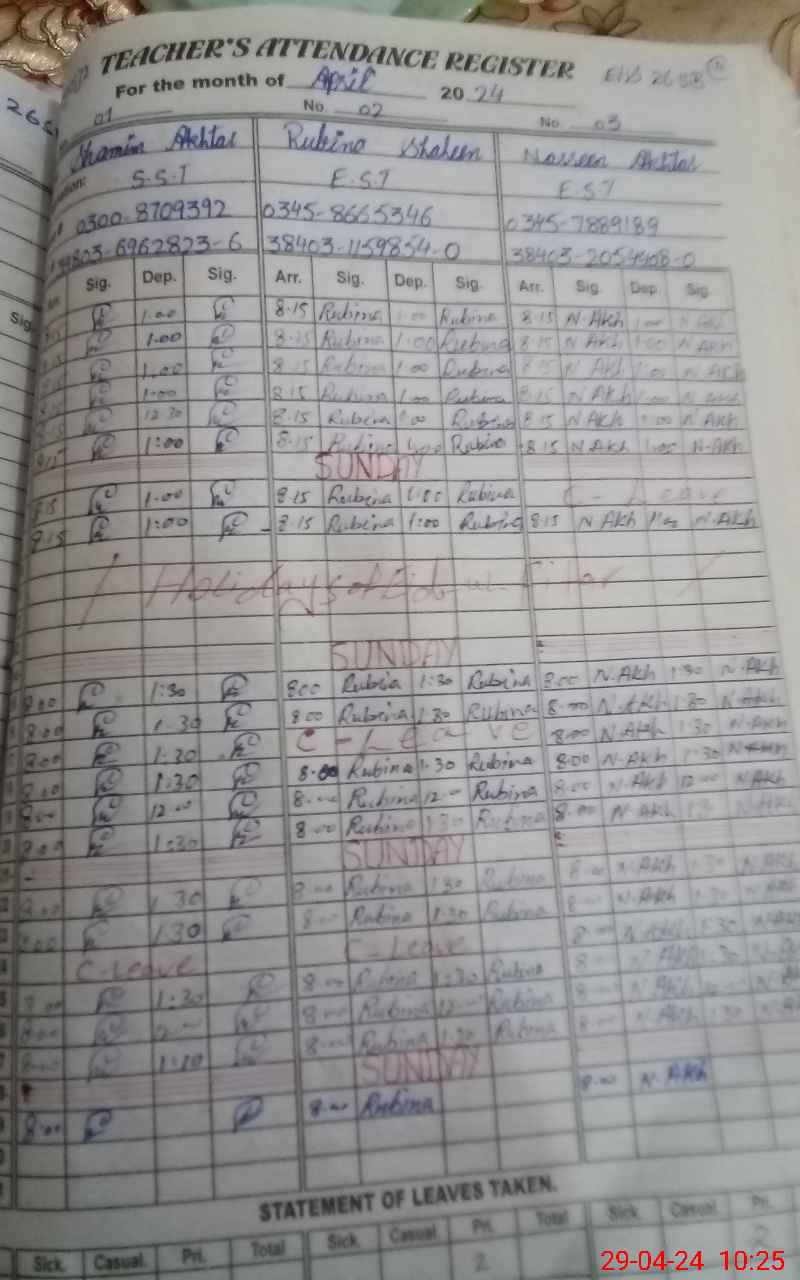 TEACHER'S ATTENDANCE REGISTER
For the month of April 2024
01 No. 02 No. 03
Shamim Akhtar Rubina Shaheen Nasreen Akhtar
S.S.T E.S.T E.S.T
0300-8709392 0345-8665346 0345-7889189
6962823-6 38403-1159854-0 38403-2054408-0
Sig. Dep. Sig. Arr. Sig. Dep. Sig. Arr. Sig. Dep. Sig.
1.00 8.15 Rubina 1.00 Rubina 8.15 N.Akh 1.00 N.Akh
1.00 8.15 Rubina 1.00 Rubina 8.15 N.Akh 1.00 N.Akh
1.00 8.15 Rubina 1.00 Rubina 8.15 N.Akh 1.00 N.Akh
1.00 8.15 Rubina 1.00 Rubina 8.15 N.Akh 1.00 N.Akh
8.15 12.30 8.15 Rubina 1.00 Rubina 8.15 N.Akh 1.00 N.Akh
8.15 1:00 8.15 Rubina 1.00 Rubina 8.15 N.Akh 1.00 N.Akh
SUNDAY
8.15 1.00 8.15 Rubina 1:00 Rubina C-Leave
8.15 1:00 8.15 Rubina 1:00 Rubina 8.15 N.Akh 1.00 N.Akh
Holidays of Eid-ul-Fitar
SUNDAY
8.00 1:30 8.00 Rubina 1:30 Rubina 8.00 N.Akh 1.30 N.Akh
8.00 1.30 8.00 Rubina 1.30 Rubina 8.00 N.Akh 1.30 N.Akh
8.00 1.30 C-Leave 8.00 N.Akh 1.30 N.Akh
8.00 1:30 8.00 Rubina 1.30 Rubina 8.00 N.Akh 1.30 N.Akh
8.00 12.00 8.00 Rubina 12.00 Rubina 8.00 N.Akh 12.00 N.Akh
8.00 1:30 8.00 Rubina 1.30 Rubina 8.00 N.Akh 1.30 N.Akh
SUNDAY
8.00 1.30 8.00 Rubina 1.30 Rubina 8.00 N.Akh 1.30 N.Akh
8.00 1.30 8.00 Rubina 1.30 Rubina 8.00 N.Akh 1.30 N.Akh
C-Leave C-Leave 8.00 N.Akh 1.30 N.Akh
8.00 1:30 8.00 Rubina 1.30 Rubina 8.00 N.Akh 1.30
8.00 8.00 Rubina 12.00 Rubina 8.00 N.Akh
8.00 8.00 Rubina 1.30 Rubina 8.00 N.Akh 1.30
SUNDAY
8.00 8.00 Rubina 8.00 N.Akh
STATEMENT OF LEAVES TAKEN.
Sick. Casual. Pri. Total Sick. Casual. Pri. Total Sick. Casual. Pri.
2 2
29-04-24 10:25